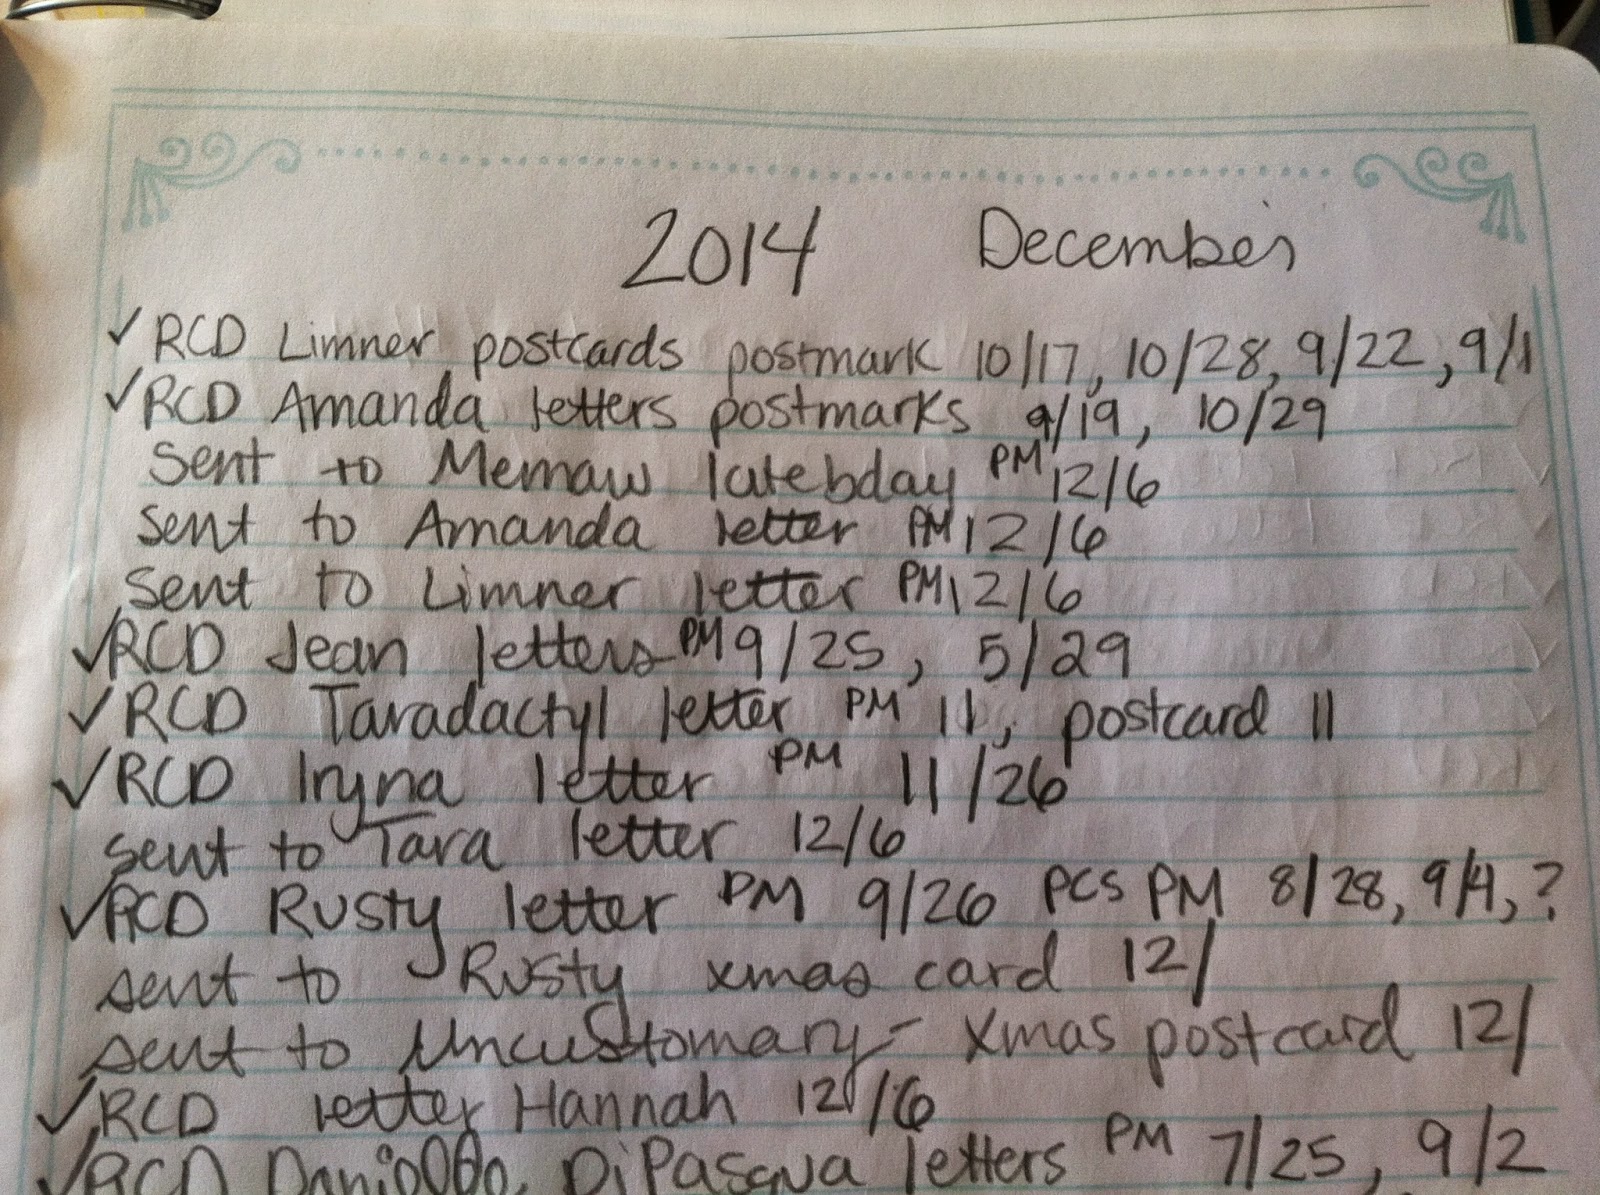 2014 December
✓ RCD Limner postcards postmark 10/17, 10/28, 9/22, 9/1
✓ RCD Amanda letters postmarks 9/19, 10/29
Sent to Memaw late bday PM 12/6
Sent to Amanda letter PM 12/6
Sent to Limner letter PM 12/6
✓ RCD Jean letters PM 9/25, 5/29
✓ RCD Taradactyl letter PM 11, postcard 11
✓ RCD Iryna letter PM 11/26
sent to Tara letter 12/6
✓ RCD Rusty letter PM 9/26 PCS PM 8/28, 9/4, ?
sent to Rusty xmas card 12/
sent to Uncustomary - Xmas postcard 12/
✓ RCD letter Hannah 12/6
✓ RCD DiPasqua letters PM 7/25, 9/2